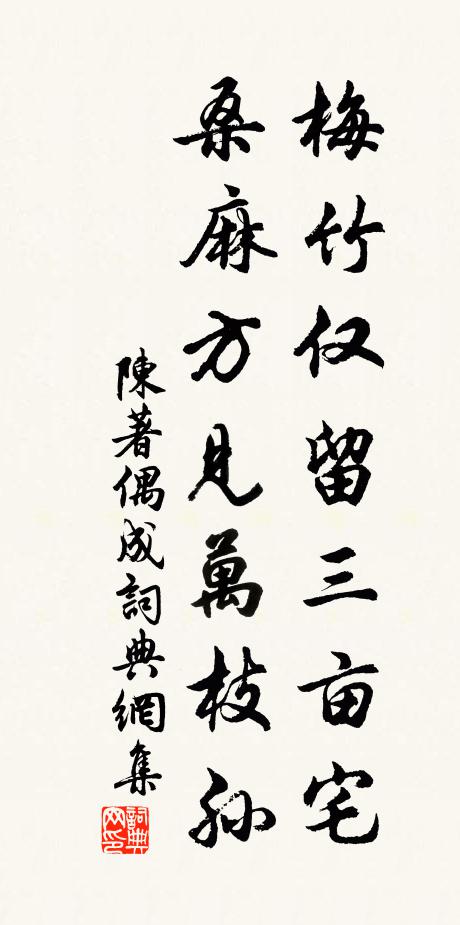 梅竹仅留三亩宅
桑麻方見萬枝孙
陳著偶成詞典網集
詞典网印